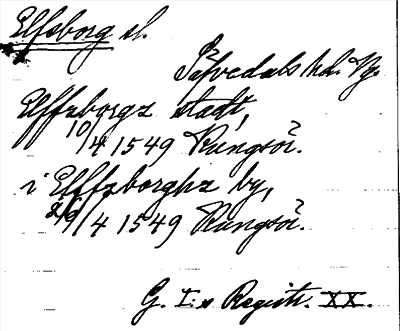 Elfsborg sl.
Sävedals hd. Vg.
Elffzborgz stadt,
10/4 1549 Kungsör.
i Elffzborghz by,
26/4 1549 Kungsör.
G. I:s Registr. XX.